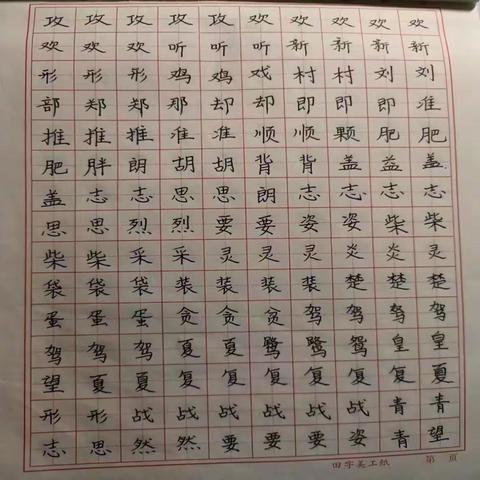 攻 攻 攻 攻 攻 欢 欢 欢 欢 欢
欢 欢 欢 听 听 听 新 新 新 新
形 形 形 鸡 鸡 戏 村 村 刘 刘
部 郑 郑 那 却 却 即 即 即 准
推 推 推 准 准 顺 顺 颗 肥 肥
肥 胖 朗 胡 胡 背 背 盖 益 盖
盖 志 志 思 思 朗 志 志 志 志
思 思 烈 烈 要 要 姿 姿 柴 柴
柴 柴 采 采 灵 灵 灵 炎 炎 灵
袋 袋 袋 装 装 装 装 楚 楚 楚
蛋 蛋 蛋 贪 贪 贫 驾 驾 驾 驾
驾 驾 驾 夏 夏 鹭 鹭 鸳 皇 皇
望 夏 夏 复 复 复 复 复 复 夏
形 形 战 战 战 战 战 战 青 青
志 思 然 然 要 要 要 姿 青 望
田字美工纸 第 页